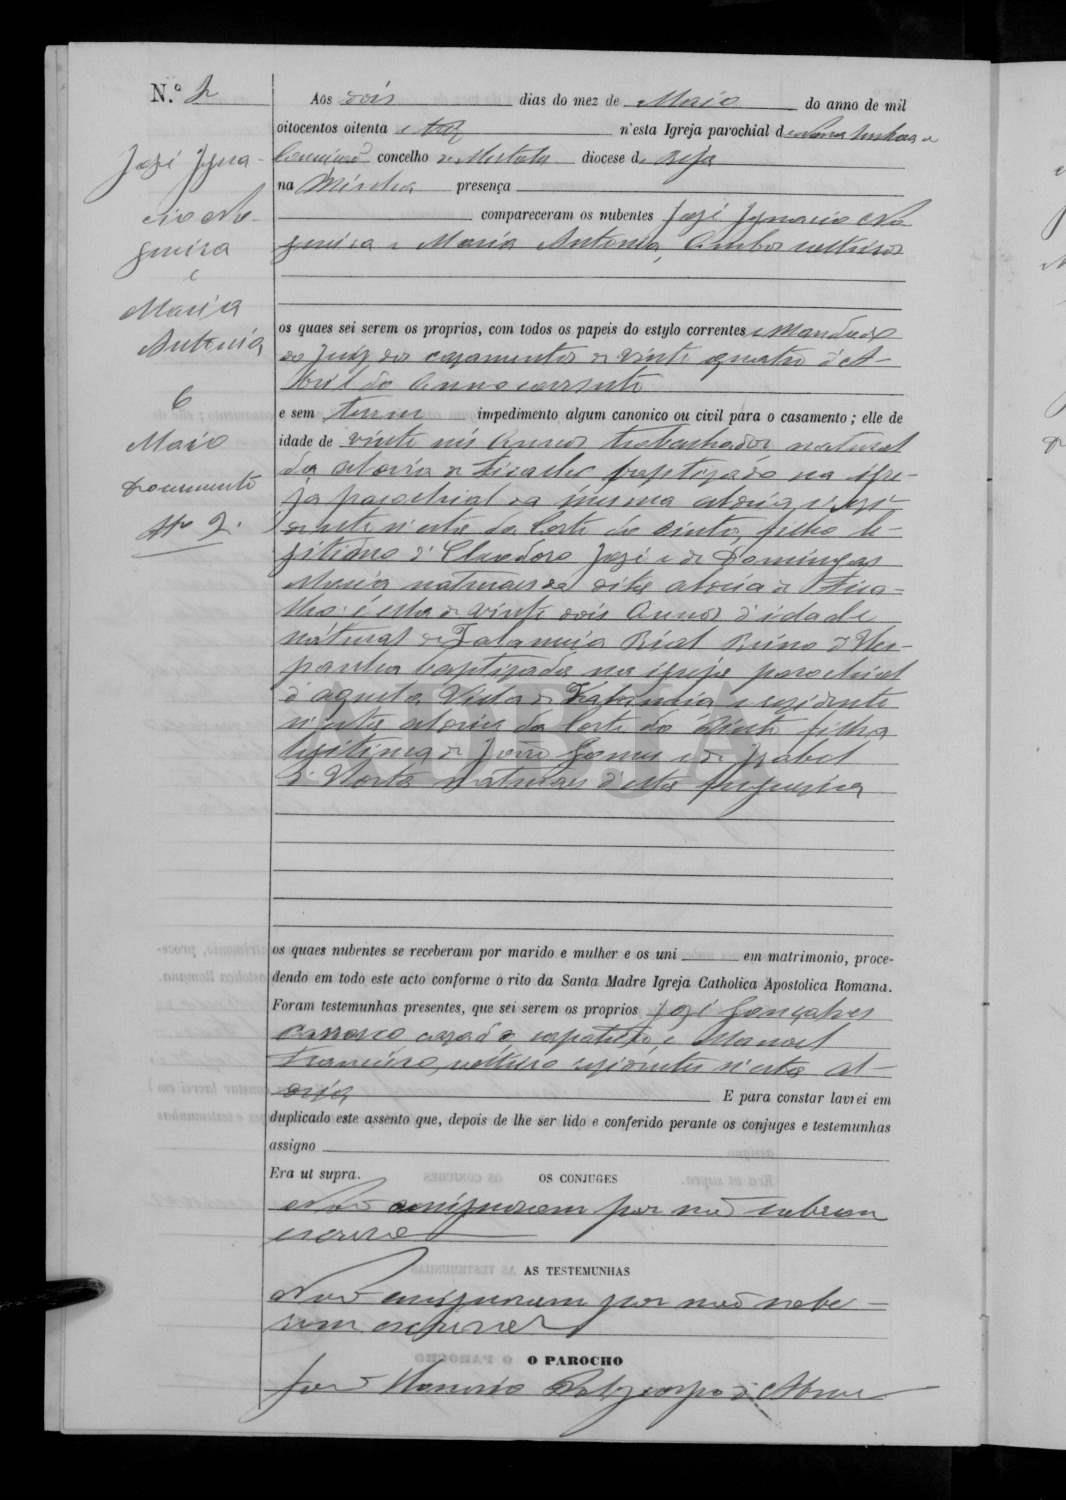 N.º 2
José Igna-
cio No-
gueira
e
Maria
Antonia
6
Maio
Documento
Nº 2.
Aos dois dias do mez de Maio do anno de mil
oitocentos oitenta e n'esta Igreja parochial de
concelho de Mertola diocese de Beja
na Minha presença
compareceram os nubentes José Ignacio No-
gueira e Maria Antonia, ambos solteiros
os quaes sei serem os proprios, com todos os papeis do estylo correntes e Mandado
do Juiz dos casamentos de vinte quatro d'A-
bril do anno corrente
e sem terem impedimento algum canonico ou civil para o casamento; elle de
idade de vinte seis annos trabalhador natural
da aldeia de Ficalho baptizado na igre-
ja parochial da mesma aldeia e rezi-
dente n'esta da Corte do Pinto, filho le-
gitimo d' José e de Domingas
Maria naturaes da dita aldeia de Fica-
lho: é ella de vinte dois annos d'idade
natural de Real Reino d'Hes-
panha baptizada na igreja parochial
d'aquella Villa de e rezidente
n'esta aldeia da Corte do Pinto filha
legitima de João Gomes e de Izabel
d'Horta naturaes d'esta freguezia
os quaes nubentes se receberam por marido e mulher e os uni em matrimonio, proce-
dendo em todo este acto conforme o rito da Santa Madre Igreja Catholica Apostolica Romana.
Foram testemunhas presentes, que sei serem os proprios José Gonçalves
cazado sapateiro, e Manoel
Francisco, solteiro rezidentes n'esta al-
deia E para constar lavrei em
duplicado este assento que, depois de lhe ser lido e conferido perante os conjuges e testemunhas
assigno
Era ut supra.
OS CONJUGES
Não assignaram por não saberem
escrever
AS TESTEMUNHAS
Não assignaram por não sabe-
rem escrever
O PAROCHO
João Honorio d'Abreu